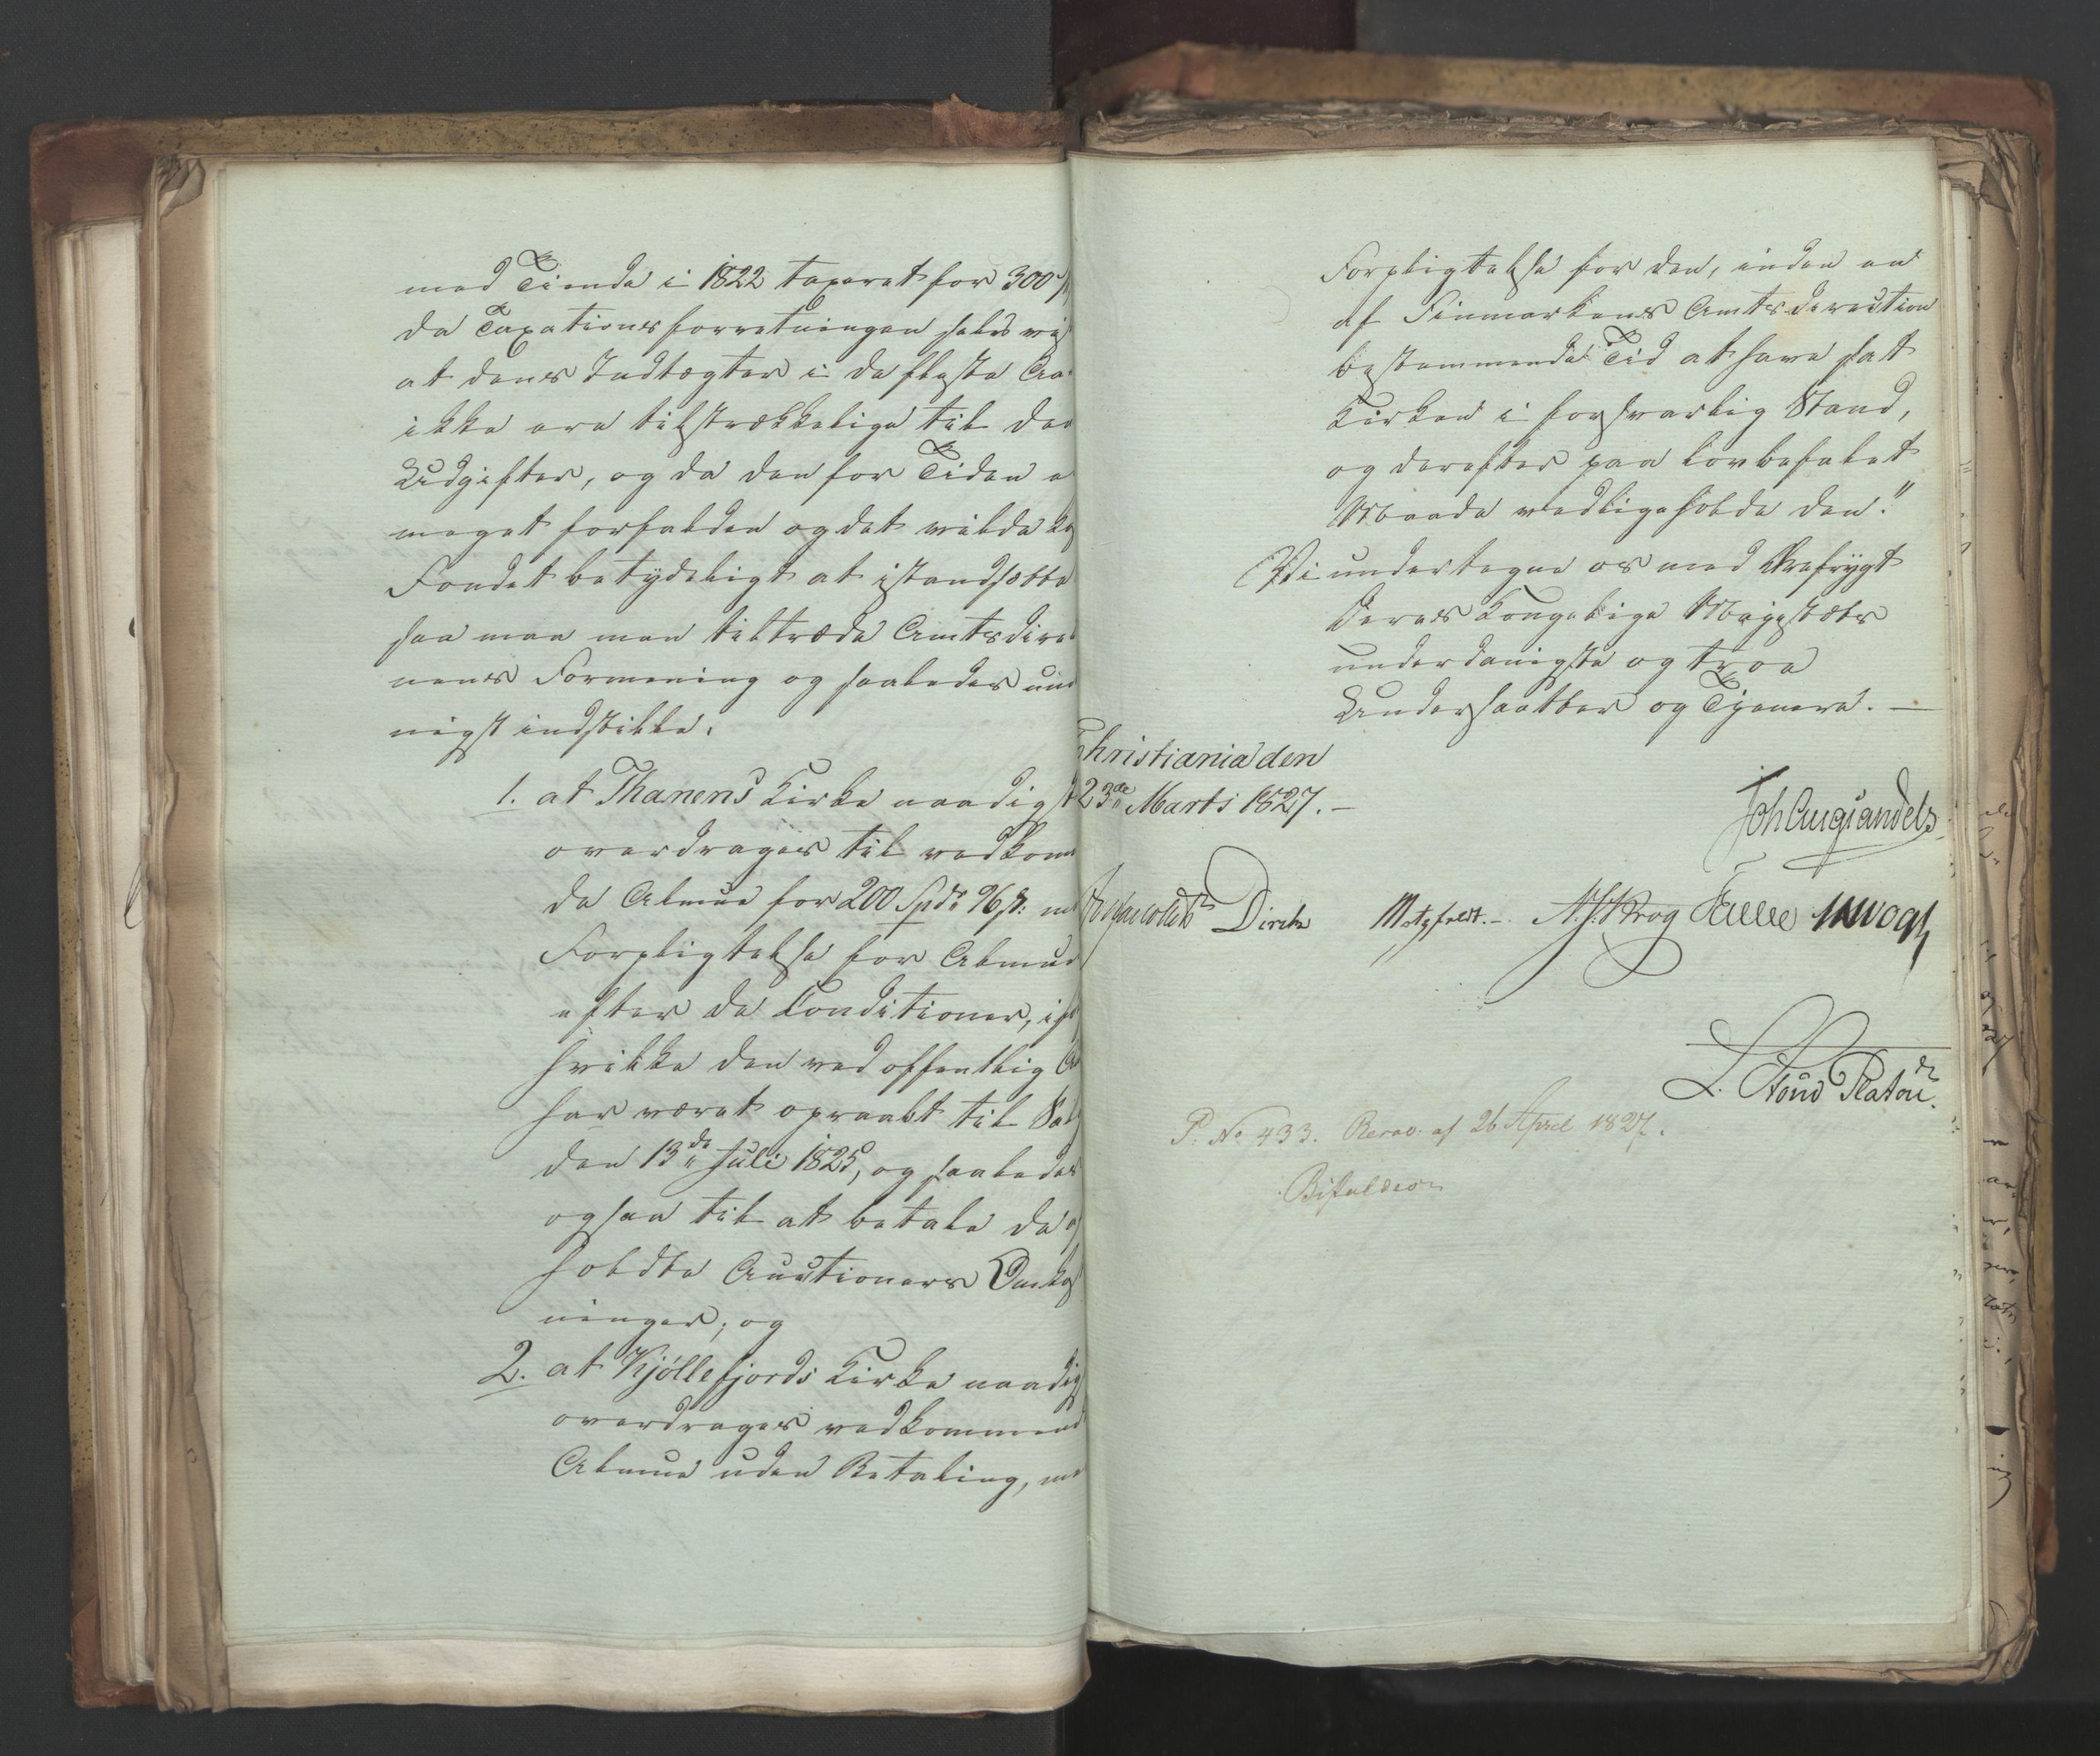 med Tiende i 1822 taxeret for 300
da Taxationsforretningen
at dens Indtægter i de fleste Aa
ikke ere tilstrækkelige til den
Udgifter, og da den for Tiden e
meget forfalden og det vilde ko
Fondet betydeligt at istandsætte
saa maa man tiltræde Amtsdirec
nens Formening og saaledes und
nigst indstille:
1. at Thanens Kirke naadigst
overdrages til vedkom
de Almue for 200 Spd: 96 s: m
Forpligtelse for Almue
efter de Conditioner,
hvilke den ved offentlig A
har været opraabt til Sal
den 13de Juli 1825, og saaledes
ogsaa til at betale de
holdte Auctioners Omkost
ninger; og
2. at Kjøllefjords Kirke naadig
overdrages vedkommend
Almue uden Betaling, me
Forpligtelse for den, inden en
af Finmarkens Amtsdirection
bestemmende Tid at have sat
Kirken i forsvarlig Stand,
og derefter paa lovbefalet
Maade vedligeholde den."
Vi undertegne os med Ærefrygt
Deres Kongelige Majestæts
underdanigste og troe
Undersaatter og Tjenere. —
Christiania den
23de Marts 1827. —
Joh Aug Sandels
Diriks Motzfeldt. — Krog
L. Stoud Platou.
P. No 433. Resol: af 26 April 1827.
Bifaldes